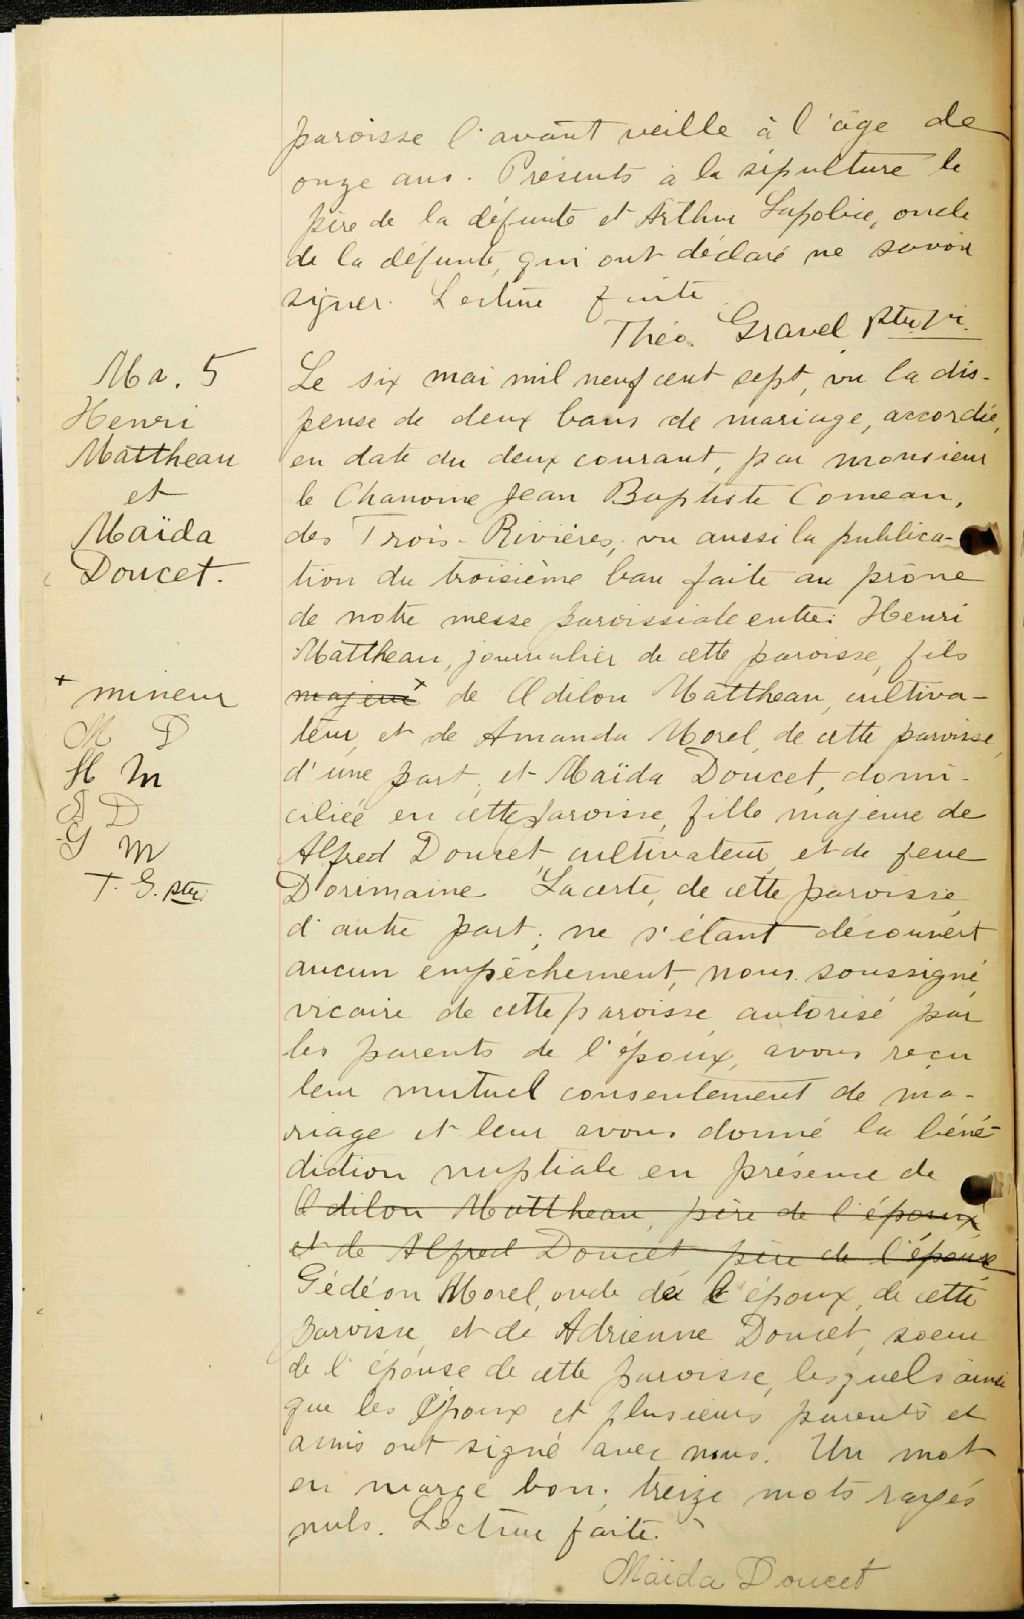 paroisse l'avant veille à l'âge de
onze ans. Présents à la sépulture le
père de la défunte et Arthur Lapolice, oncle
de la défunte, qui ont déclaré ne savoir
signer. Lecture faite.
Théo. Gravel ptre vic.
Ma. 5
Henri
Mattheau
et
Maïda
Doucet.
Le six mai mil neuf cent sept, vu la dis-
pense de deux bans de mariage, accordée,
en date du deux courant, par monsieur
le Chanoine Jean Baptiste Comeau,
des Trois-Rivières, vu aussi la publica-
tion du troisième ban faite au prône
de notre messe paroissiale entre: Henri
Mattheau, journalier de cette paroisse, fils
majeur + de Odilon Mattheau, cultiva-
teur, et de Amanda Morel, de cette paroisse,
d'une part, et Maïda Doucet, domi-
ciliée en cette paroisse, fille majeure de
Alfred Doucet cultivateur, et de feue
Dorimaine Lacerte, de cette paroisse,
d'autre part; ne s'étant découvert
aucun empêchement, nous soussigné,
vicaire de cette paroisse, autorisé par
les parents de l'époux, avons reçu
leur mutuel consentement de ma-
riage et leur avons donné la béné-
diction nuptiale en présence de
Odilon Mattheau, père de l'époux,
et de Alfred Doucet, père de l'épouse
Gédéon Morel, oncle de l'époux, de cette
paroisse, et de Adrienne Doucet, soeur
de l'épouse de cette paroisse, lesquels ainsi
que les époux et plusieurs parents et
amis ont signé avec nous. Un mot
en marge bon; treize mots rayés
nuls. Lecture faite.
Maïda Doucet
+ mineur
M D
H M
A D
G M
T. G. ptre